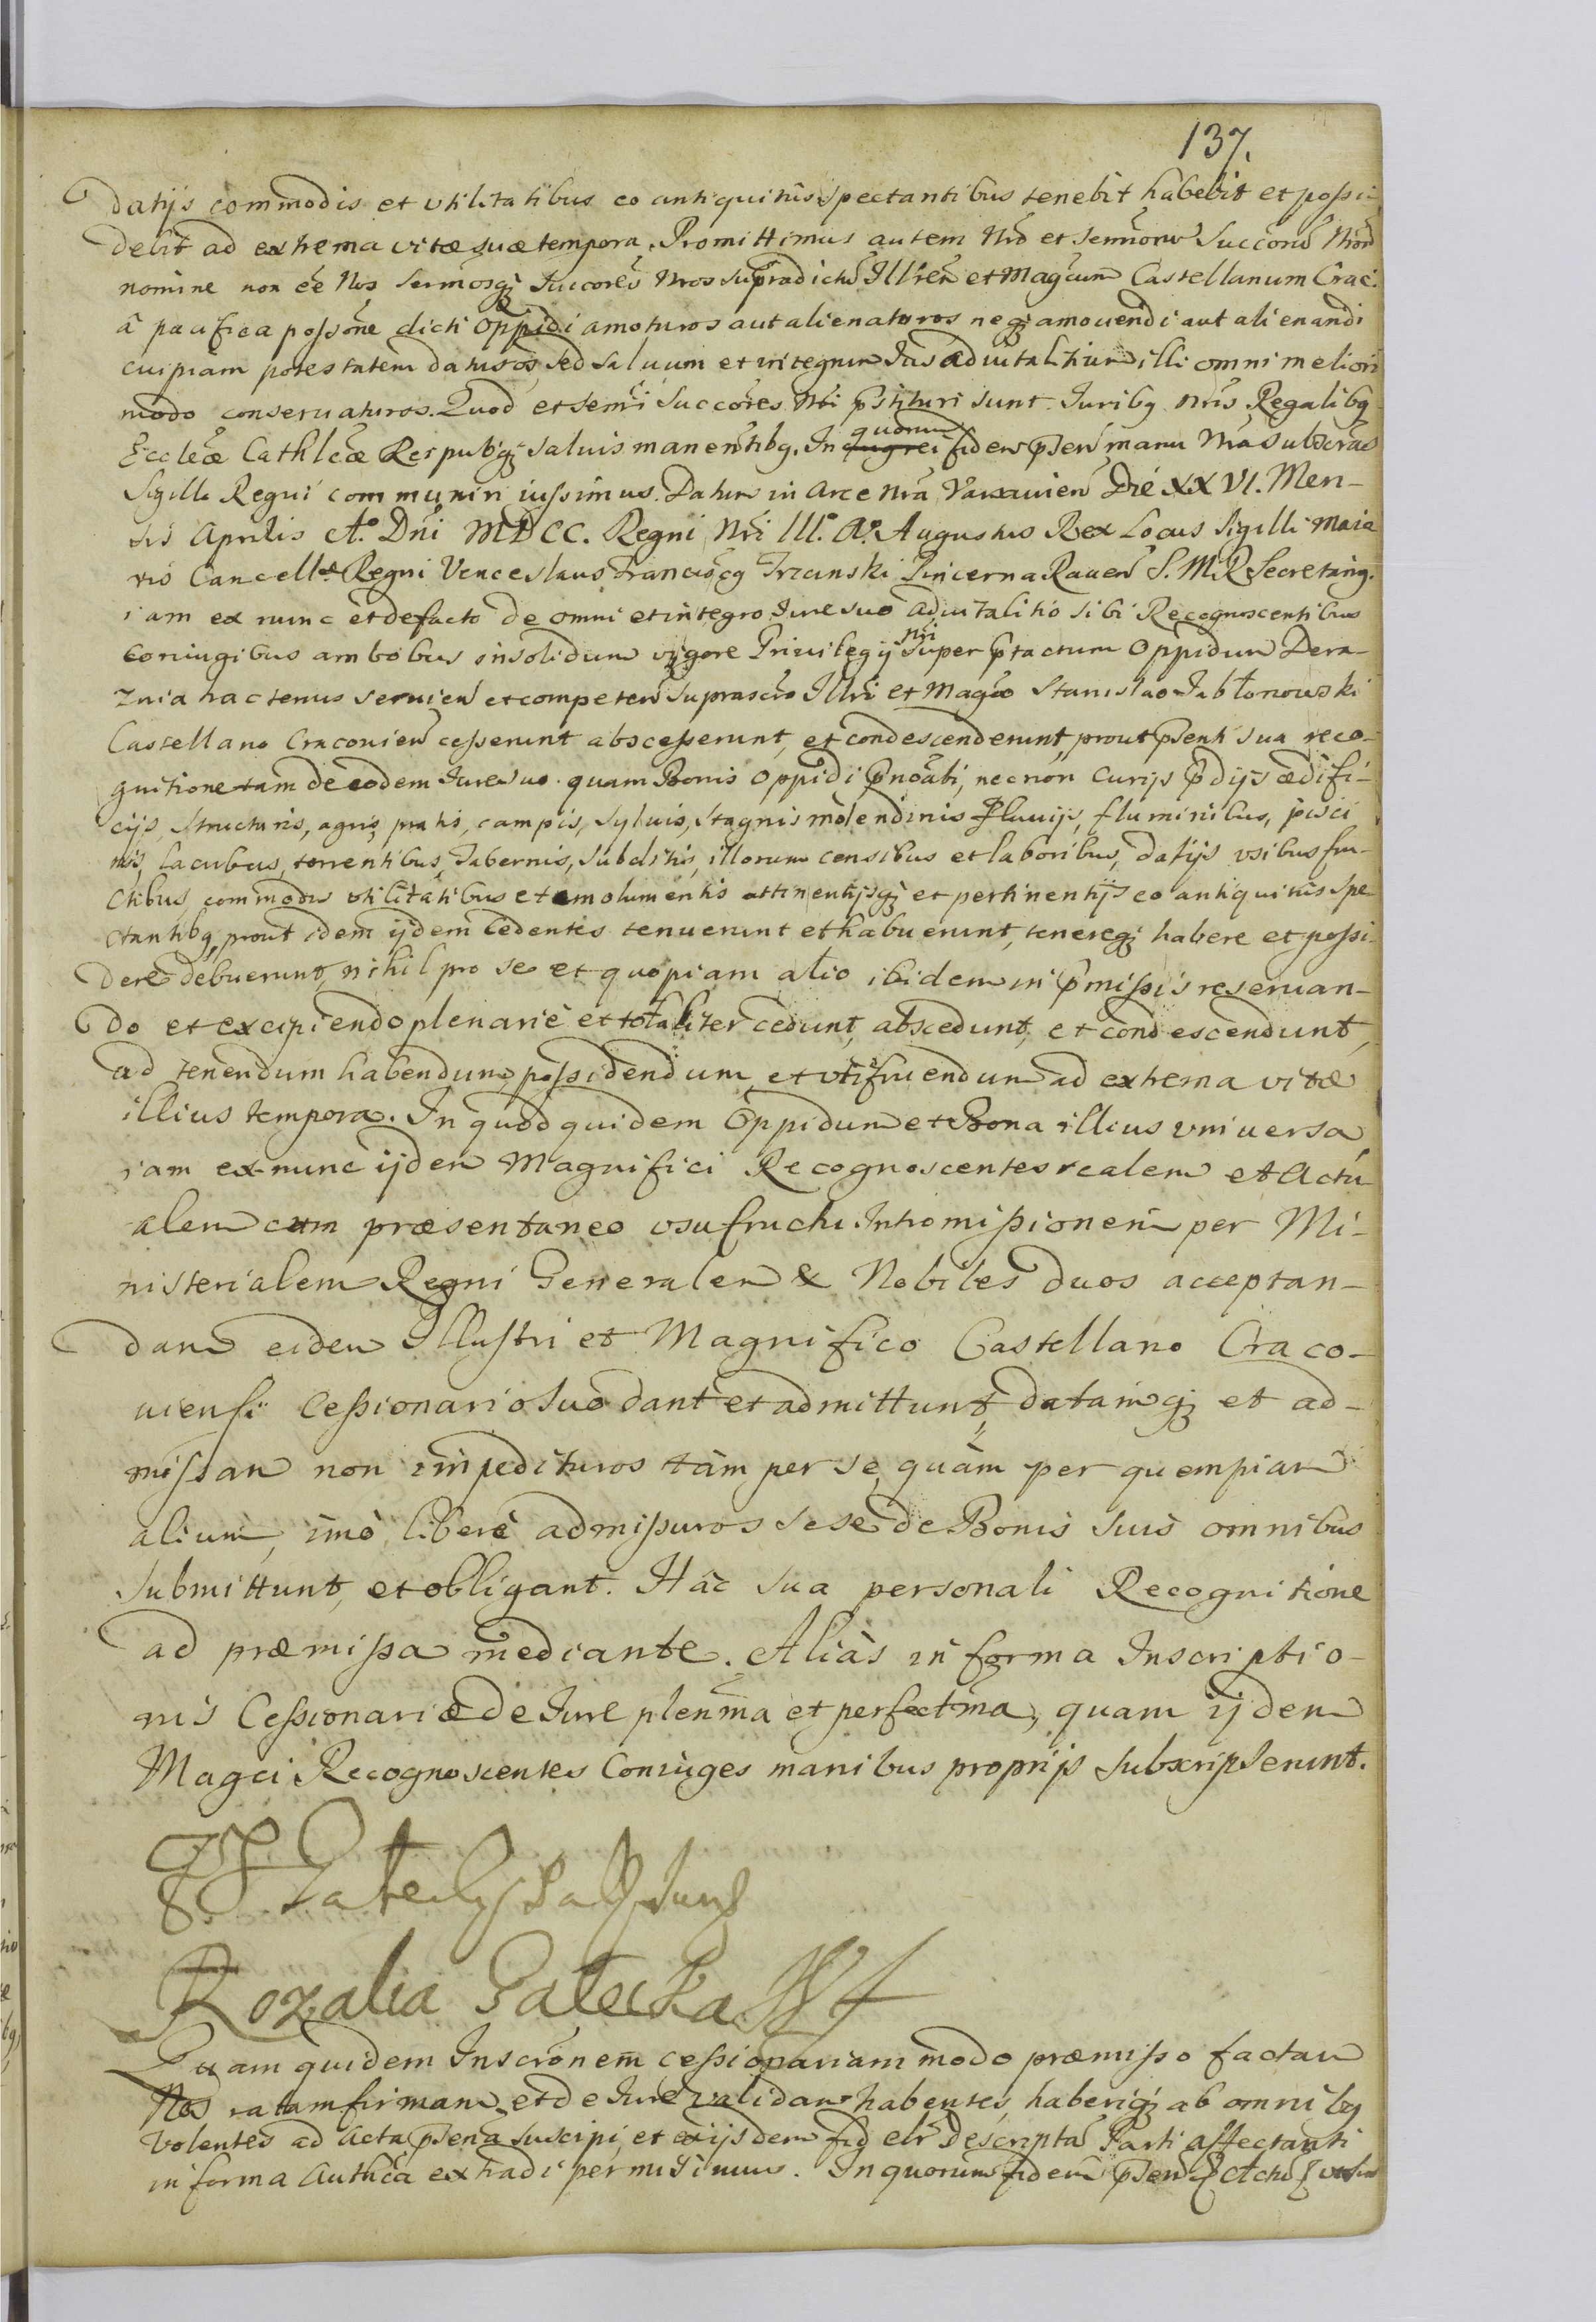 137.
datijs commodis et vtilitatibus eo antiquitùs spectantibus tenebit habebit et possi-
debit ad extrema vitæ suæ tempora. Promittimus autem Nrõ et Sermõrũ Succõrũ Nrõrũ
nomine non eẽ Nos Sermõsq; Succorẽs Nros supradictũ Illrẽm et Magcum Castellanum Crac:
â pacifica possõne dicti Oppidi amoturos aut alienaturos neq; amouendi aut alienandi
cuipiam potestatem daturos, sed saluum et integrum Ius aduitalitium illi omni meliori
modo conseruaturos. Quod et Sermi Succõres Nri p̃stituri sunt. Iuribq nris Regalibq
Eccleæ Cathlcæ Reipubq; saluis manentibq. In quorum fidem p̃sen manu Nra subscrãs
Sigillo Regni communiri iussimus. Datum in Arce Nra Varsauien Die XXVI. Men-
sis Aprilis Ao. Dni MDCC. Regni Nri III.o Ao. Augustus Rex Locus Sigilli Maio
ris Cancellæ Regni Venceslaus Franciscq Trzcinski Pincerna Rauen S. M. R. Secretariq.
iam ex nunc et de facto de omni et integro Iure suo aduitalitio sibi Recognoscentibus
Coniugibus ambobus insolidum vigore Priuilegij nri super p̃tactum Oppidum Dera-
znia hactenus seruien et competen suprascrõ Illri et Magco Stanislao Jabłonowski
Castellano Cracouien cesserunt abscesserunt, et condescenderunt, prout p̃senti sua reco-
gnitione tam de eodem Iure suo quam Bonis Oppidi p̃noãti, necnon Curijs p̃dijs ædifi-
cijs, structuris, agris, pratis, campis, syluis, stagnis molendinis fluuijs, fluminibus, pisci
nis, lacubus, torrentibus, Tabernis, subditis, illorum censibus et laboribus, datijs vsibus fru-
ctibus, commodis vtilitatibus et emolumentis attinentijsq; et pertinentijs eo antiquitùs spe
ctantibq, prout idem ijdem Cedentes tenuerunt et habuerunt, tenereq; habere et possi-
dere debuerunt, nihil pro se et quopiam alio ibidem in p̃missis reseruan-
do et excipiendo plenariè et totaliter cedunt, abscedunt, et condescendunt,
ad tenendum habendum, possidendum, et vtifruendum ad extrema vitæ
illius tempora. In quod quidem Oppidum et Bona illius vniuersa
iam ex nunc ijdem Magnifici Recognoscentes realem et Actu
alem cum præsentaneo vsufructu Intromissionem per Mi-
nisterialem Regni Generalem & Nobiles duos acceptan-
dam eidem Illustri et Magnifico Castellano Craco-
uiensi Cessionario suo dant et admittunt, datamq; et ad-
missam non impedituros tàm per se, quàm per quempiam
alium, imò liberè admissuros sese de Bonis suis omnibus
submittunt, et obligant. Hâc sua personali Recognitione
ad præmissa mediante. Aliàs in forma Inscriptio-
nis Cessionariæ de Iure plenma et perfectma, quam ijdem
Magci Recognoscentes Coniuges manibus proprijs subscripserunt.
Rozalia Gałecka
Quam quidem Inscrõnem cessionariam modo præmisso factam
Nos ratam firmam, et de Iure validam habentes, haberiq; ab omnibq
volentes ad Acta p̃sena suscipi, et ex ijsdem fid elr Descripta Parti affectanti
in forma Authca extradi permisimus. In quorum fidem p̃sen